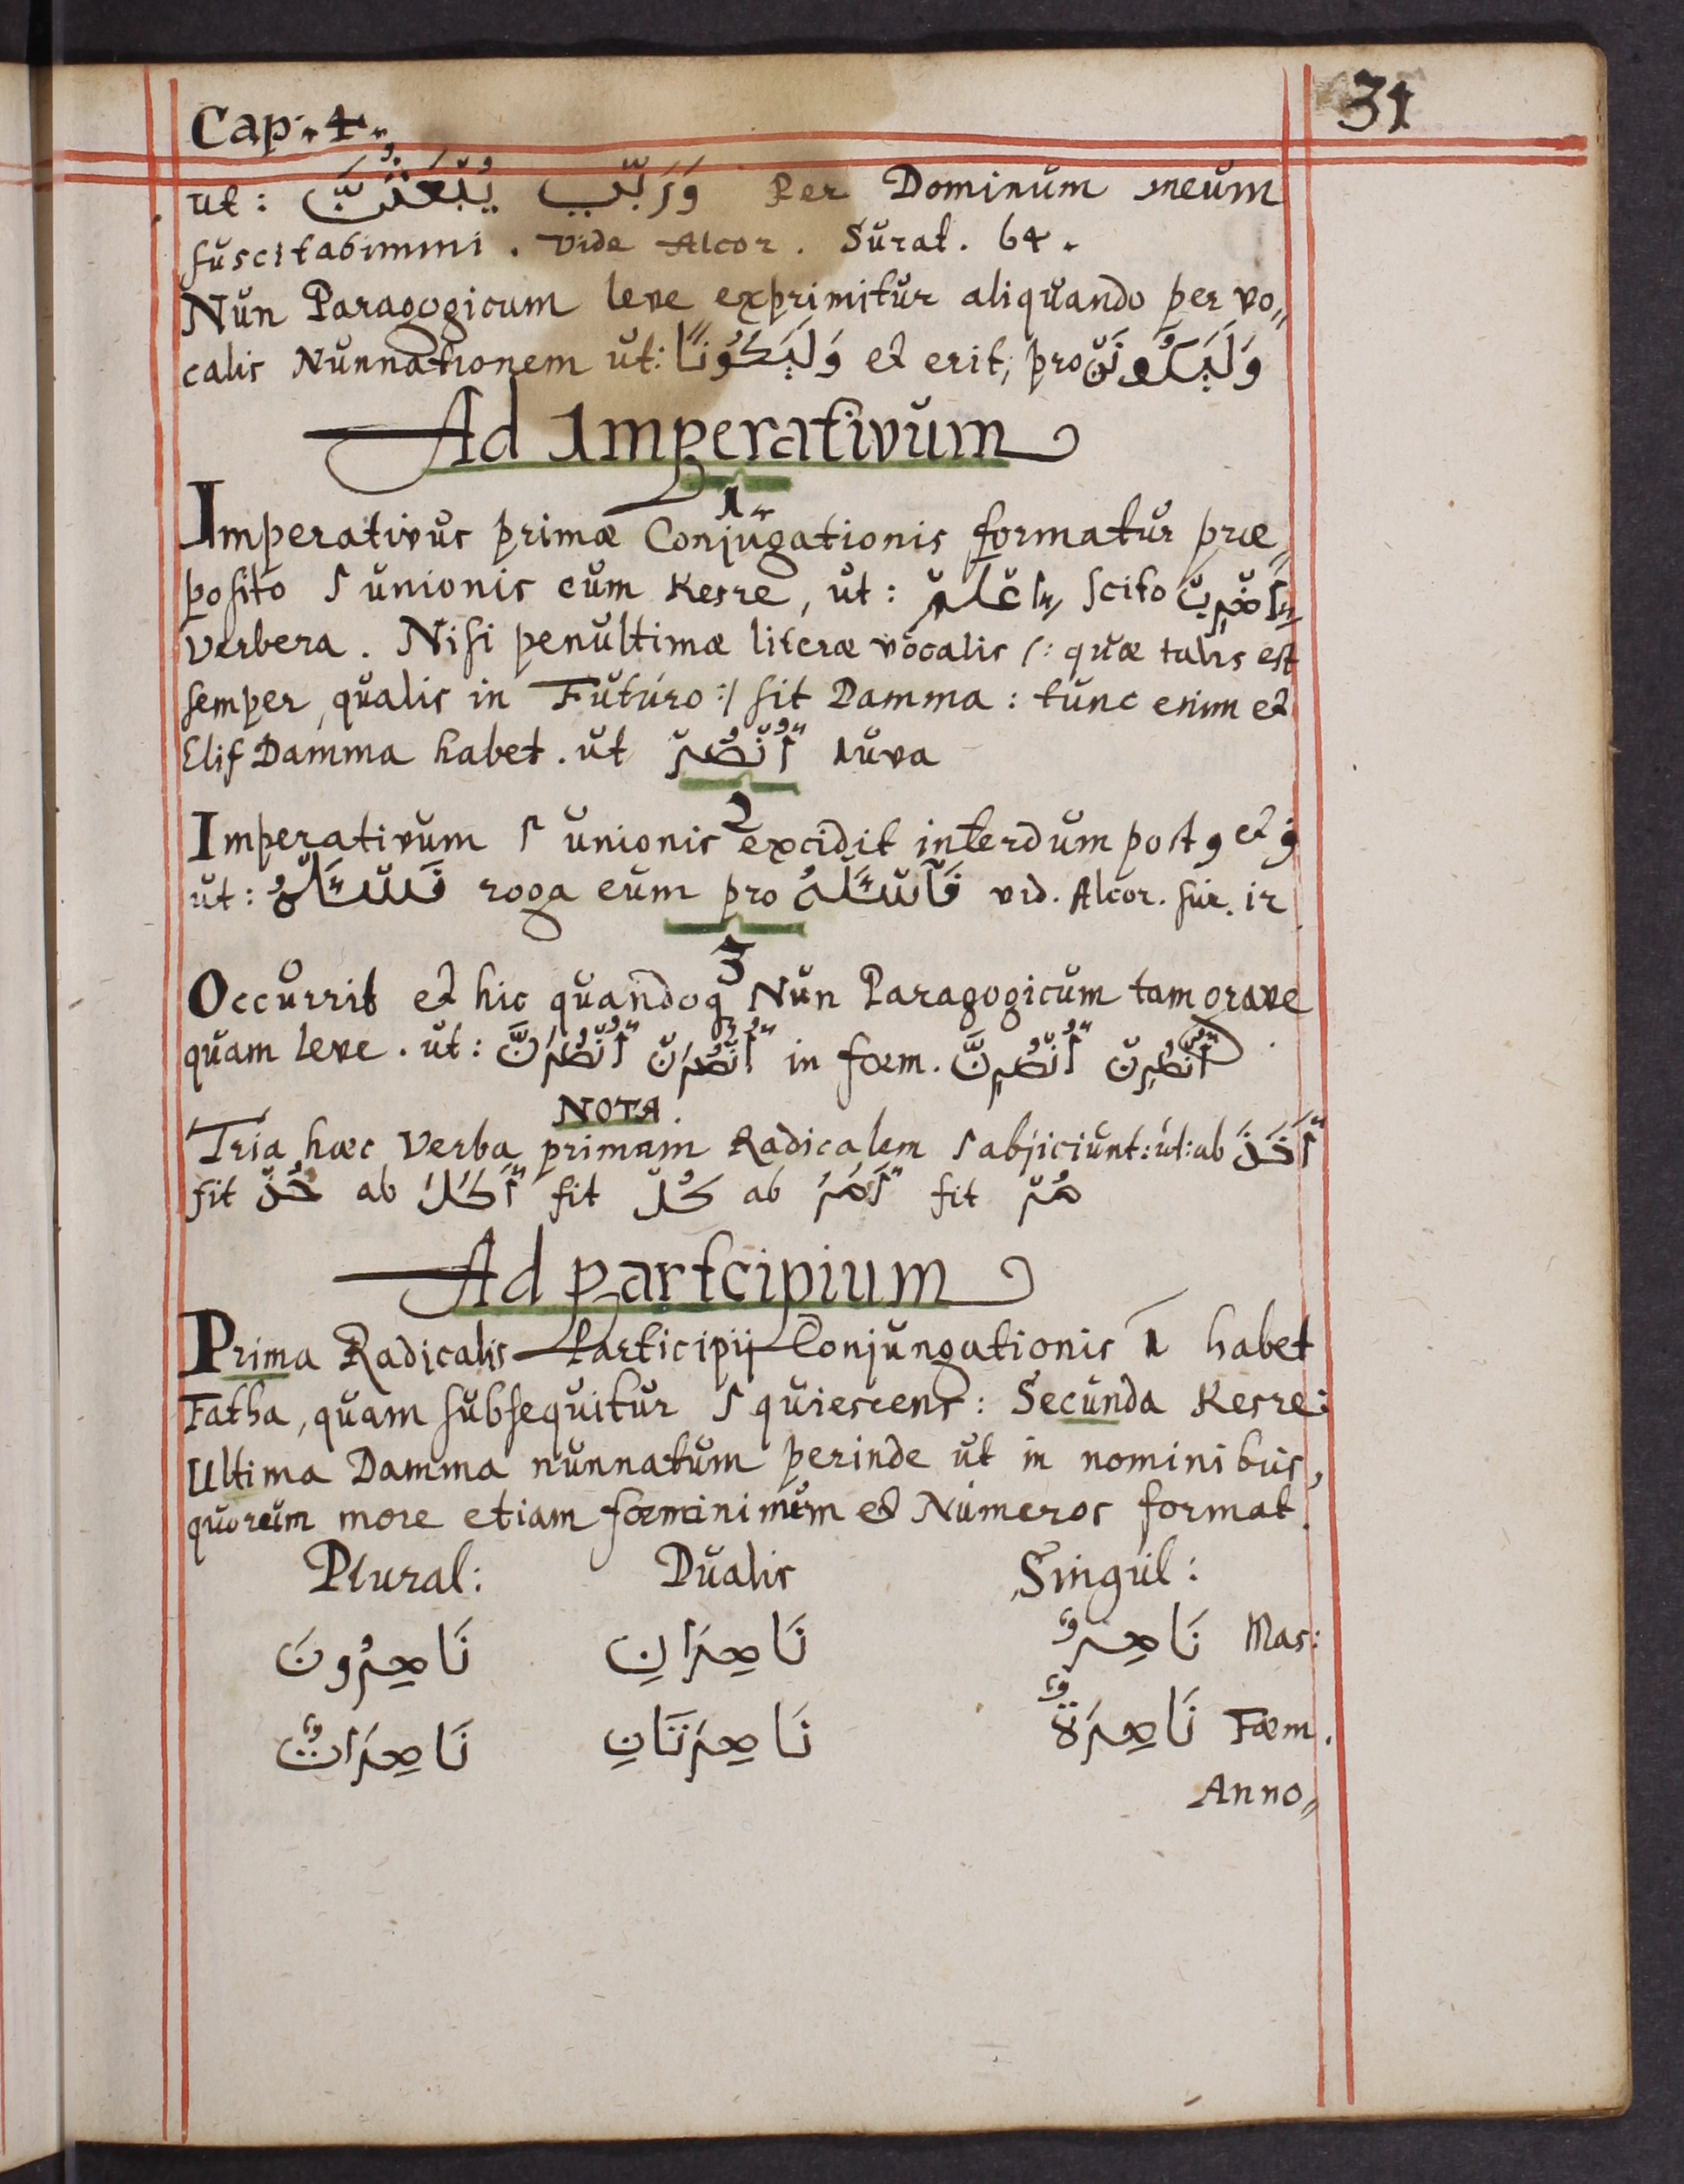 31
Cap. 4.
ut: وَرَبِّي يُبْعَثُنَّ Per Dominum meum
suscitabimini. Vide Alcor. Surat. 64.
Nun Paragogicum leve exprimitur aliquando per vo„
calis Nunnationem ut: وَلَيَكُونًا et erit, pro وَلَيَكُونَنْ
Ad Imperativum
1.
Imperativus primæ Conjugationis formatur præ„
posito ا unionis cum Kesre, ut: اِعْلَمْ scito اِضْرِبْ
Verbera. Nisi penultimæ literæ vocalis (: quæ talis est
semper, qualis in Futuro :) sit Damma: tunc enim et
Elif Damma habet. ut اُنْصُرْ Iuva
2
Imperativum ا unionis excidit interdum post و et ف
ut: فَسْئَلْهُ roga eum pro فَاسْئَلْهُ vid. Alcor. sur.
3
Occurrit et hic quandoq Nun Paragogicum tam grave
quam leve. ut: اُنْصُرَنَّ اُنْصُرَنْ in fœm. اُنْصُرِنَّ اُنْصُرِنْ
NOTA.
Tria hæc Verba primam Radicalem ا abjiciunt: ut: ab أَخَذَ
fit خُذْ ab أَكَلَ fit كُلْ ab أَمَرَ fit مُرْ
Ad partcipium
Prima Radicalis Participij Conjungationis 1 habet
Fatha, quam subsequitur ا quiescens: Secunda Kesre:
Ultima Damma nunnatum perinde ut in nominibus,
quorum more etiam fœmininum et Numeros format.
Plural: Dualis Singul:
نَاصِرُونَ نَاصِرَانِ نَاصِرٌ Mas:
نَاصِرَاتٌ نَاصِرَتَانِ نَاصِرَةٌ Fœm.
Anno„